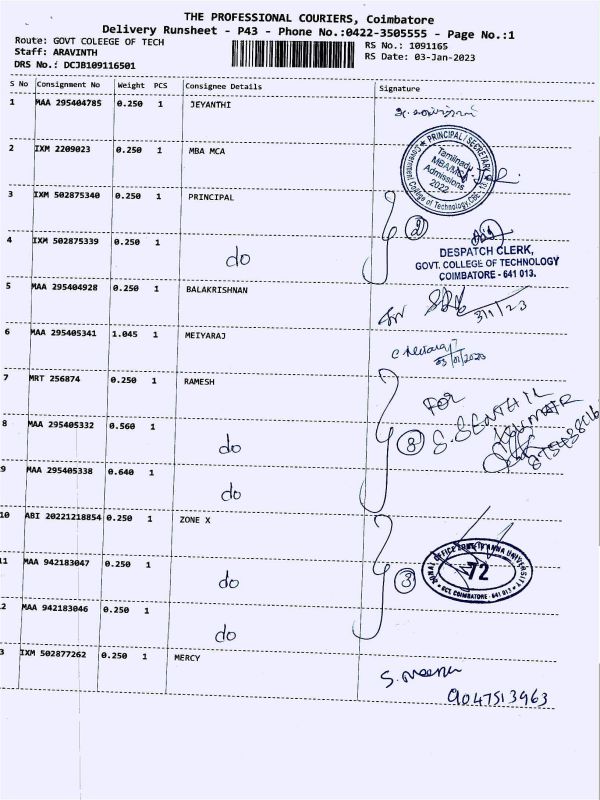 THE PROFESSIONAL COURIERS, Coimbatore
Delivery Runsheet - P43 - Phone No.:0422-3505555 - Page No.:1
Route: GOVT COLEEGE OF TECH
Staff: ARAVINTH
DRS No.: DCJB109116501
RS No.: 1091165
RS Date: 03-Jan-2023
S No Consignment No Weight PCS Consignee Details Signature
1 MAA 295404785 0.250 1 JEYANTHI
2 IXM 2209023 0.250 1 MBA MCA
PRINCIPAL/SECRETARY
Tamilnadu
MBA/MCA
Admissions
2022
Government College of Technology, CBE
3 IXM 502875340 0.250 1 PRINCIPAL
2
4 IXM 502875339 0.250 1 do
DESPATCH CLERK,
GOVT. COLLEGE OF TECHNOLOGY
COIMBATORE - 641 013.
5 MAA 295404928 0.250 1 BALAKRISHNAN
for
3/1/23
6 MAA 295405341 1.045 1 MEIYARAJ
03/01/2023
7 MRT 256874 0.250 1 RAMESH
FOR
S. SENTHIL
KUMAR
8 MAA 295405332 0.560 1 do
3
9 MAA 295405338 0.640 1 do
10 ABI 20221218854 0.250 1 ZONE X
ZONAL OFFICE ANNA UNIVERSITY
72
GCT, COIMBATORE - 641 013
11 MAA 942183047 0.250 1 do
3
2 MAA 942183046 0.250 1 do
3 IXM 502877262 0.250 1 MERCY
S. Meena
9047513963